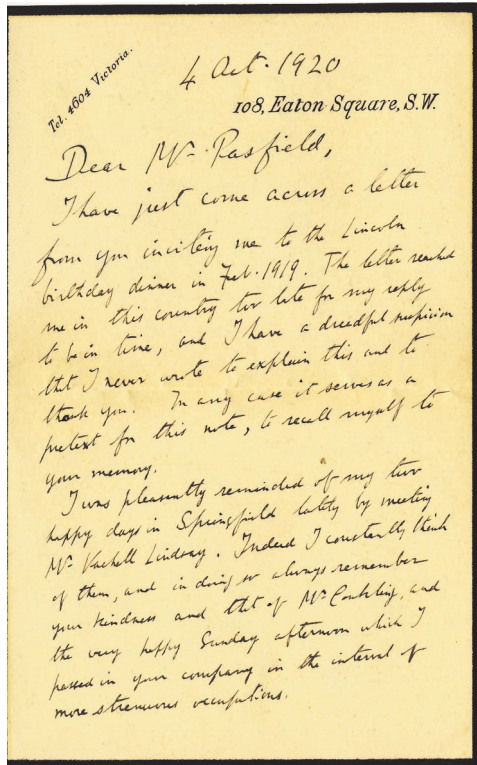 Tel. 4604 Victoria.
4 Oct. 1920
108, Eaton Square, S.W.
Dear Mr. Pasfield,
I have just come across a letter
from you inviting me to the Lincoln
birthday dinner in Feb. 1919. The letter reached
me in this country too late for my reply
to be in time, and I have a dreadful suspicion
that I never wrote to explain this and to
thank you. In any case it serves as a
pretext for this note, to recall myself to
your memory.
I was pleasantly reminded of my two
happy days in Springfield lately by meeting
Mr. Vachell Lindsay. Indeed I constantly think
of them, and in doing so always remember
your kindness and that of Mr. Conkling, and
the very happy Sunday afternoon which I
passed in your company in the interval of
more strenuous occupations.